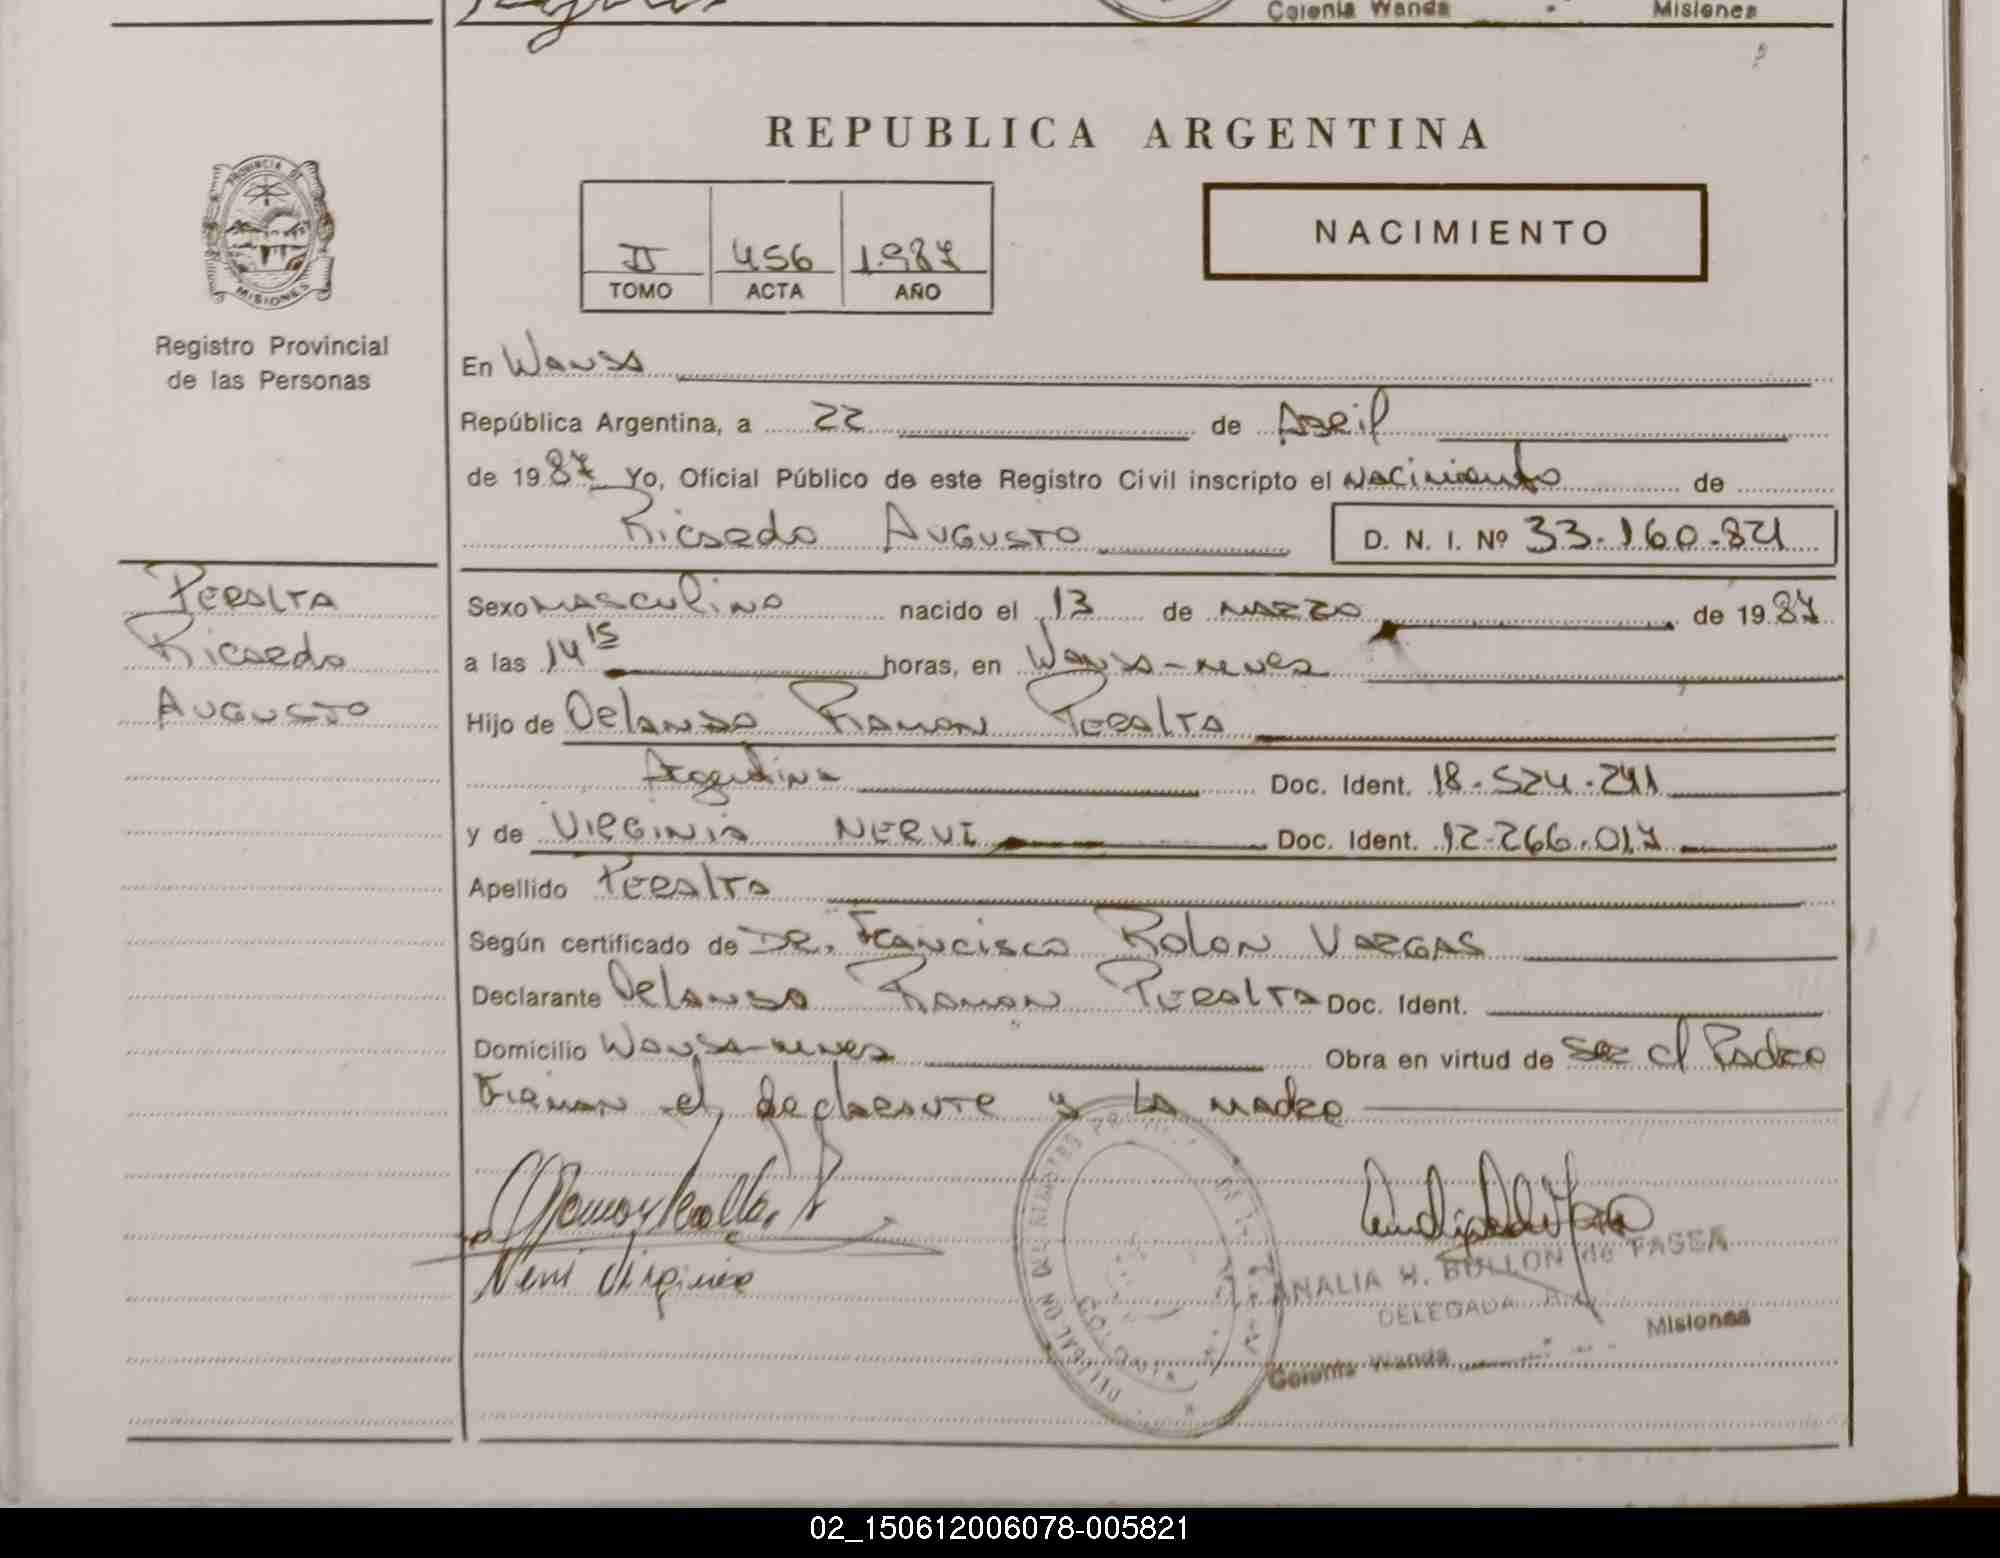 Colonia Wanda Misiones
REPUBLICA ARGENTINA
PROVINCIA DE
MISIONES
Registro Provincial
de las Personas
II 456 1.987
TOMO ACTA AÑO
NACIMIENTO
En Wanda
República Argentina, a 22 de Abril
de 1987 Yo, Oficial Público de este Registro Civil inscripto el Nacimiento de
Ricardo Augusto D. N. I. Nº 33.160.821
Peralta
Ricardo
Augusto
Sexo masculino nacido el 13 de marzo de 1987
a las 14 15 horas, en Wanda-mnes
Hijo de Orlando Ramon Peralta
Argentina Doc. Ident. 18.524.241
y de Virginia NERVI Doc. Ident. 12.266.017
Apellido Peralta
Según certificado de DR. Francisco Rolon Vargas
Declarante Orlando Ramon Peralta Doc. Ident.
Domicilio Wanda-mnes Obra en virtud de ser el Padre
Firman el declarante y la madre
Nervi Virginia
ANALIA H. BULLON de FASER
DELEGADA
Colonia Wanda Misiones
02_150612006078-005821